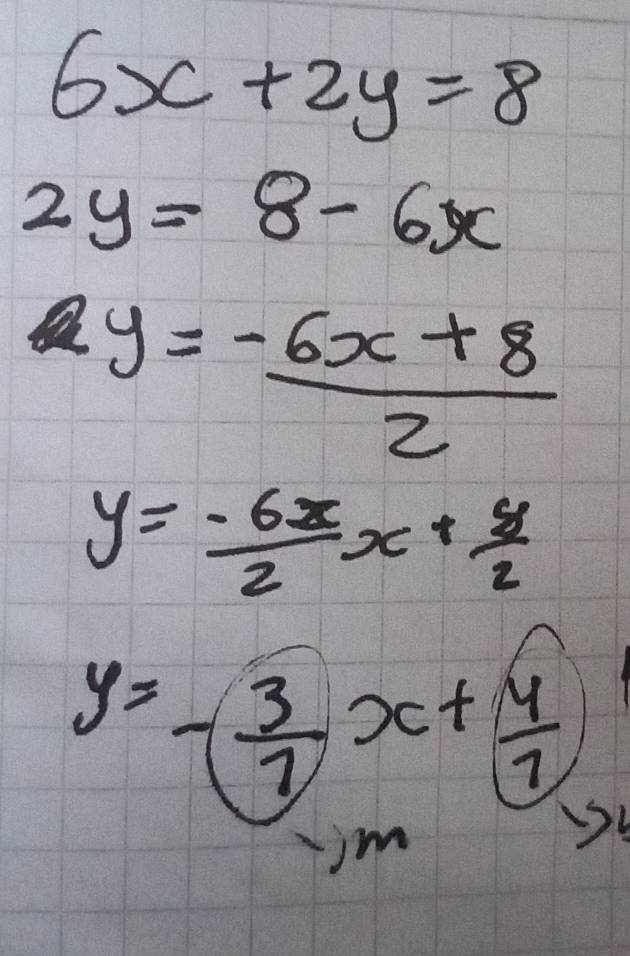 6x + 2y = 8
2y = 8 - 6x
y = -6x + 8
2
y = -6/2 x + 8/2
y = -3/1 x + 4/1
m